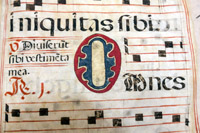 iniquitas sibi
V. Diviserūt
sibi vestimēta
mea.
R. j.
Omnes